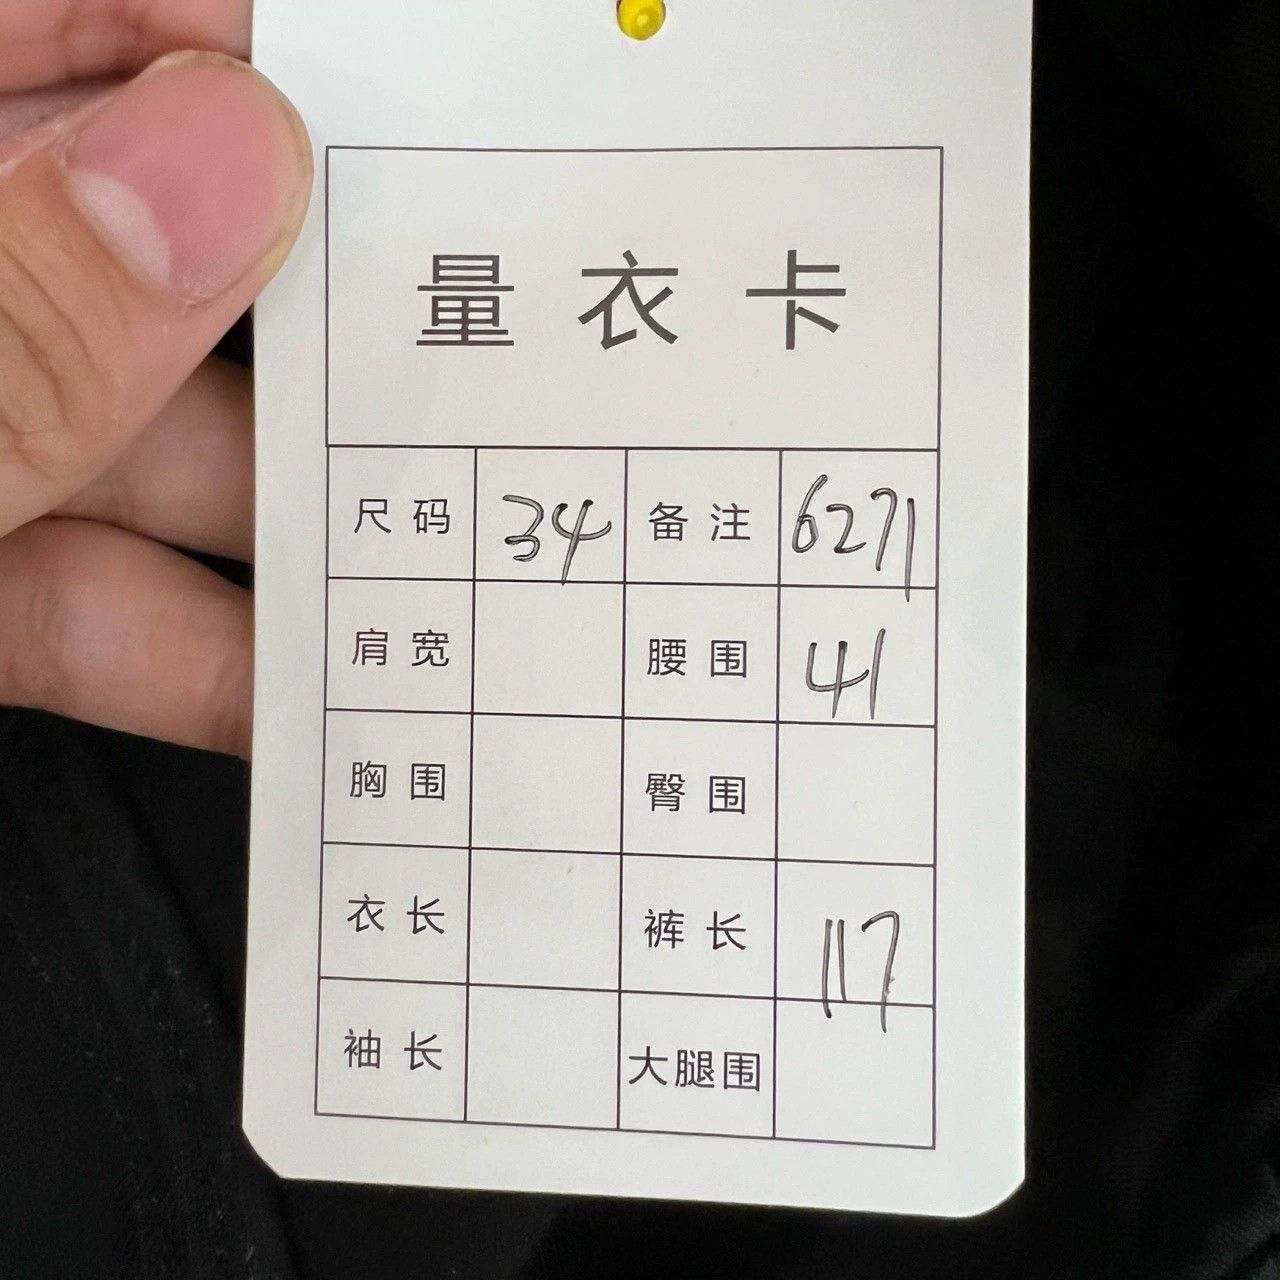 量衣卡
尺码 34 备注 6271
肩宽 腰围 41
胸围 臀围
衣长 裤长 117
袖长 大腿围